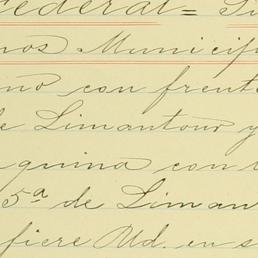 Federal = Si
nos Municip
no con frent
e Limantour y
quina con
5ª de Liman
fiere Ud. en s